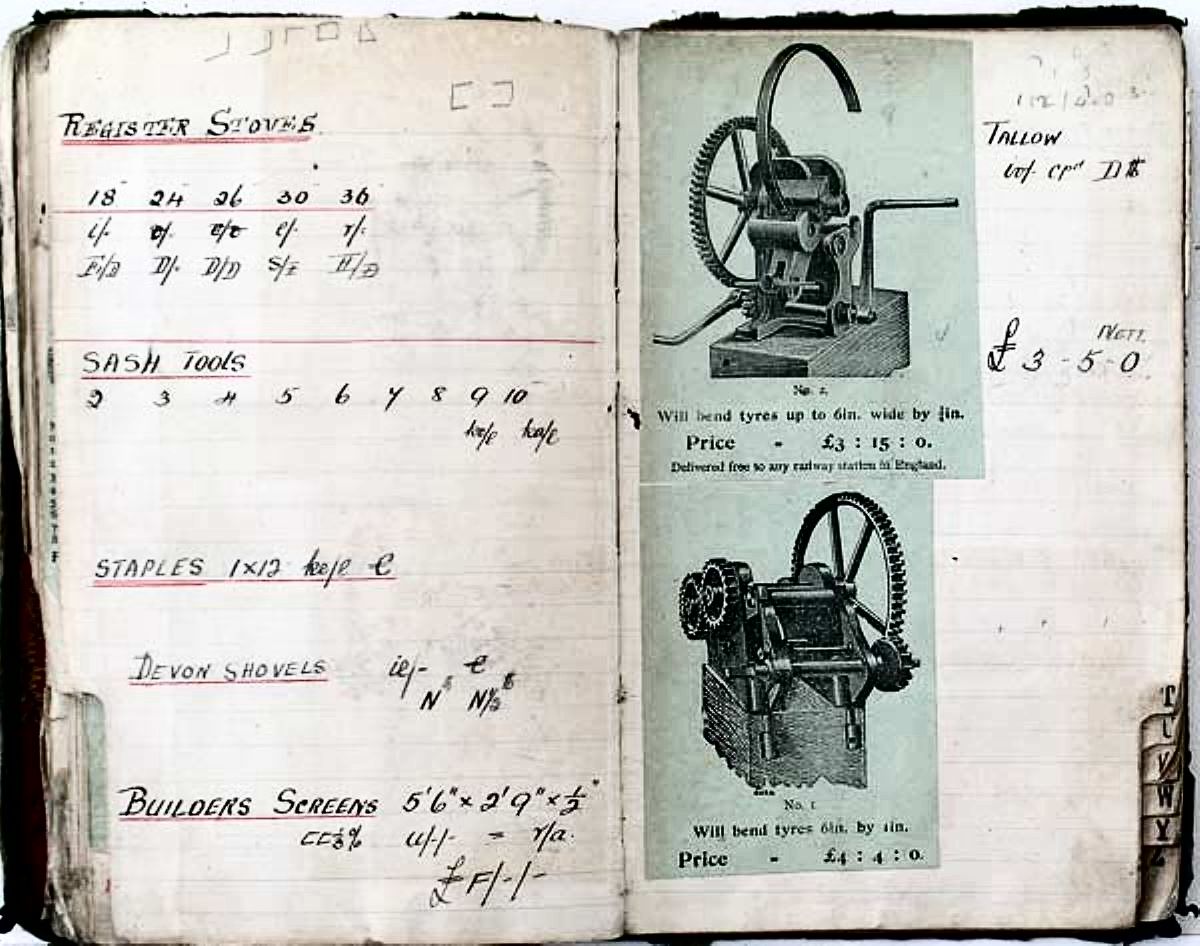 REGISTER STOVES
18 24 26 30 36
i/. e/. e/. r/.
F/D D/. D/D S/E H/D
SASH TOOLS
2 3 4 5 6 7 8 9 10
ke/e
STAPLES 1x12 ke/e e
DEVON SHOVELS ie/- e
N N½
BUILDERS SCREENS 5'6" x 2'9" x ½"
u/-/- = r/a.
£ F/-/-
No. 2.
Will bend tyres up to 6in. wide by ¾in.
Price - £3 : 15 : 0.
Delivered free to any railway station in England.
No. 1
Will bend tyres 6in. by 1in.
Price - £4 : 4 : 0.
TALLOW
NETT
£ 3 - 5 - 0
T
V
W
Y